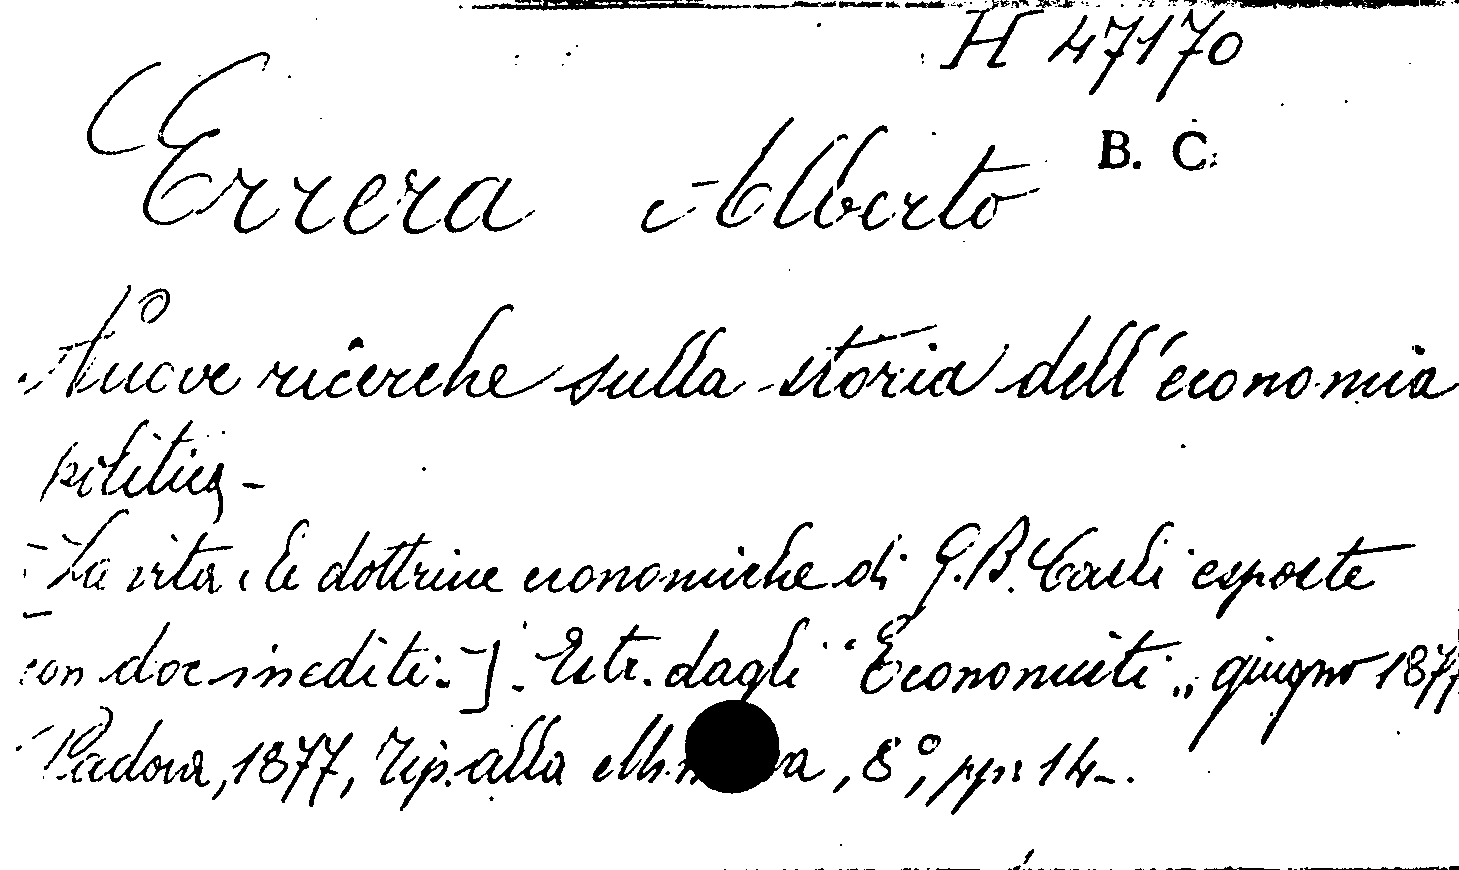 H 47170
B. C.
Errera Alberto
Nuove ricerche sulla storia dell'economia
politica -
[La vita e le dottrine economiche di G. B. Carli esposte
con doc inediti.-]. Estr. dagli "Economisti„ giugno 1877
Padova, 1877, Tip. alla , 8°, pp. 14-.